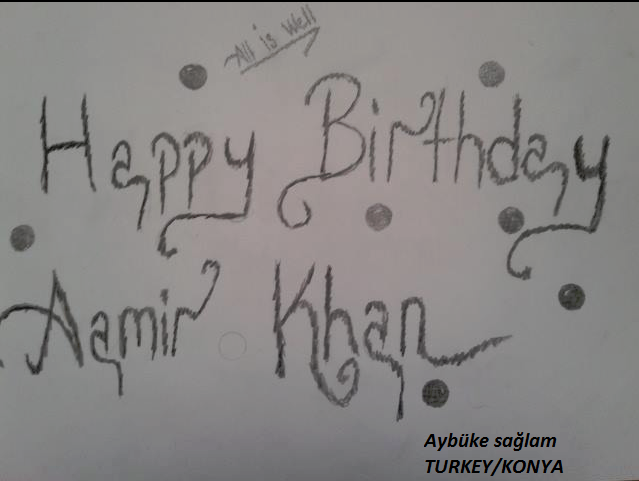 All is Well
Happy Birthday
Aamir Khan
Aybüke sağlam
TURKEY/KONYA